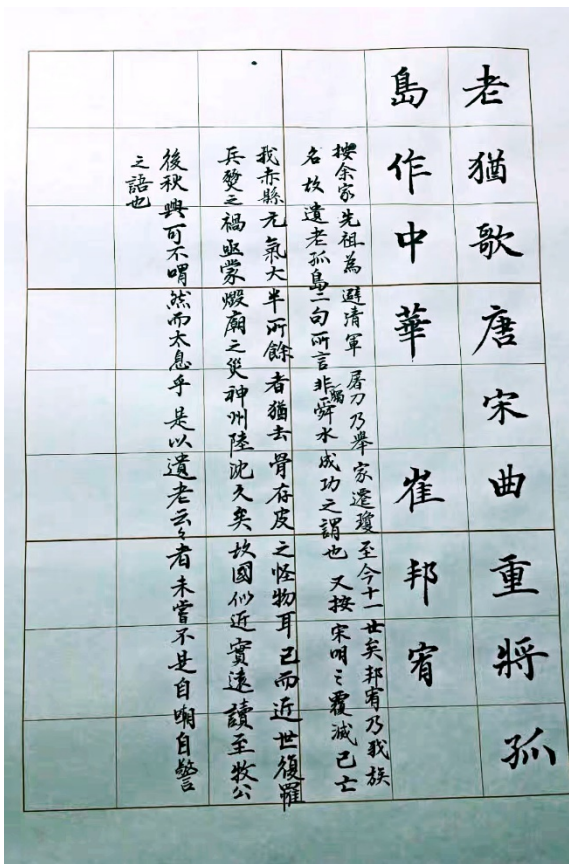 老猶歌唐宋曲重將孤
島作中華 崔邦宥
按余家先祖為避清軍屠刀乃舉家遷瓊至今十一世矣邦宥乃我族
名故遺老孤島二句所言非獨舜水成功之謂也又按宋明之覆滅已亡
我赤縣元氣大半所餘者猶去骨存皮之怪物耳已而近世復罹
兵燹之禍亟蒙燬廟之災神州陸沈久矣故國似近實遠讀至牧公
後秋興可不喟然而太息乎是以遺老云々者未嘗不是自嘲自警
之語也